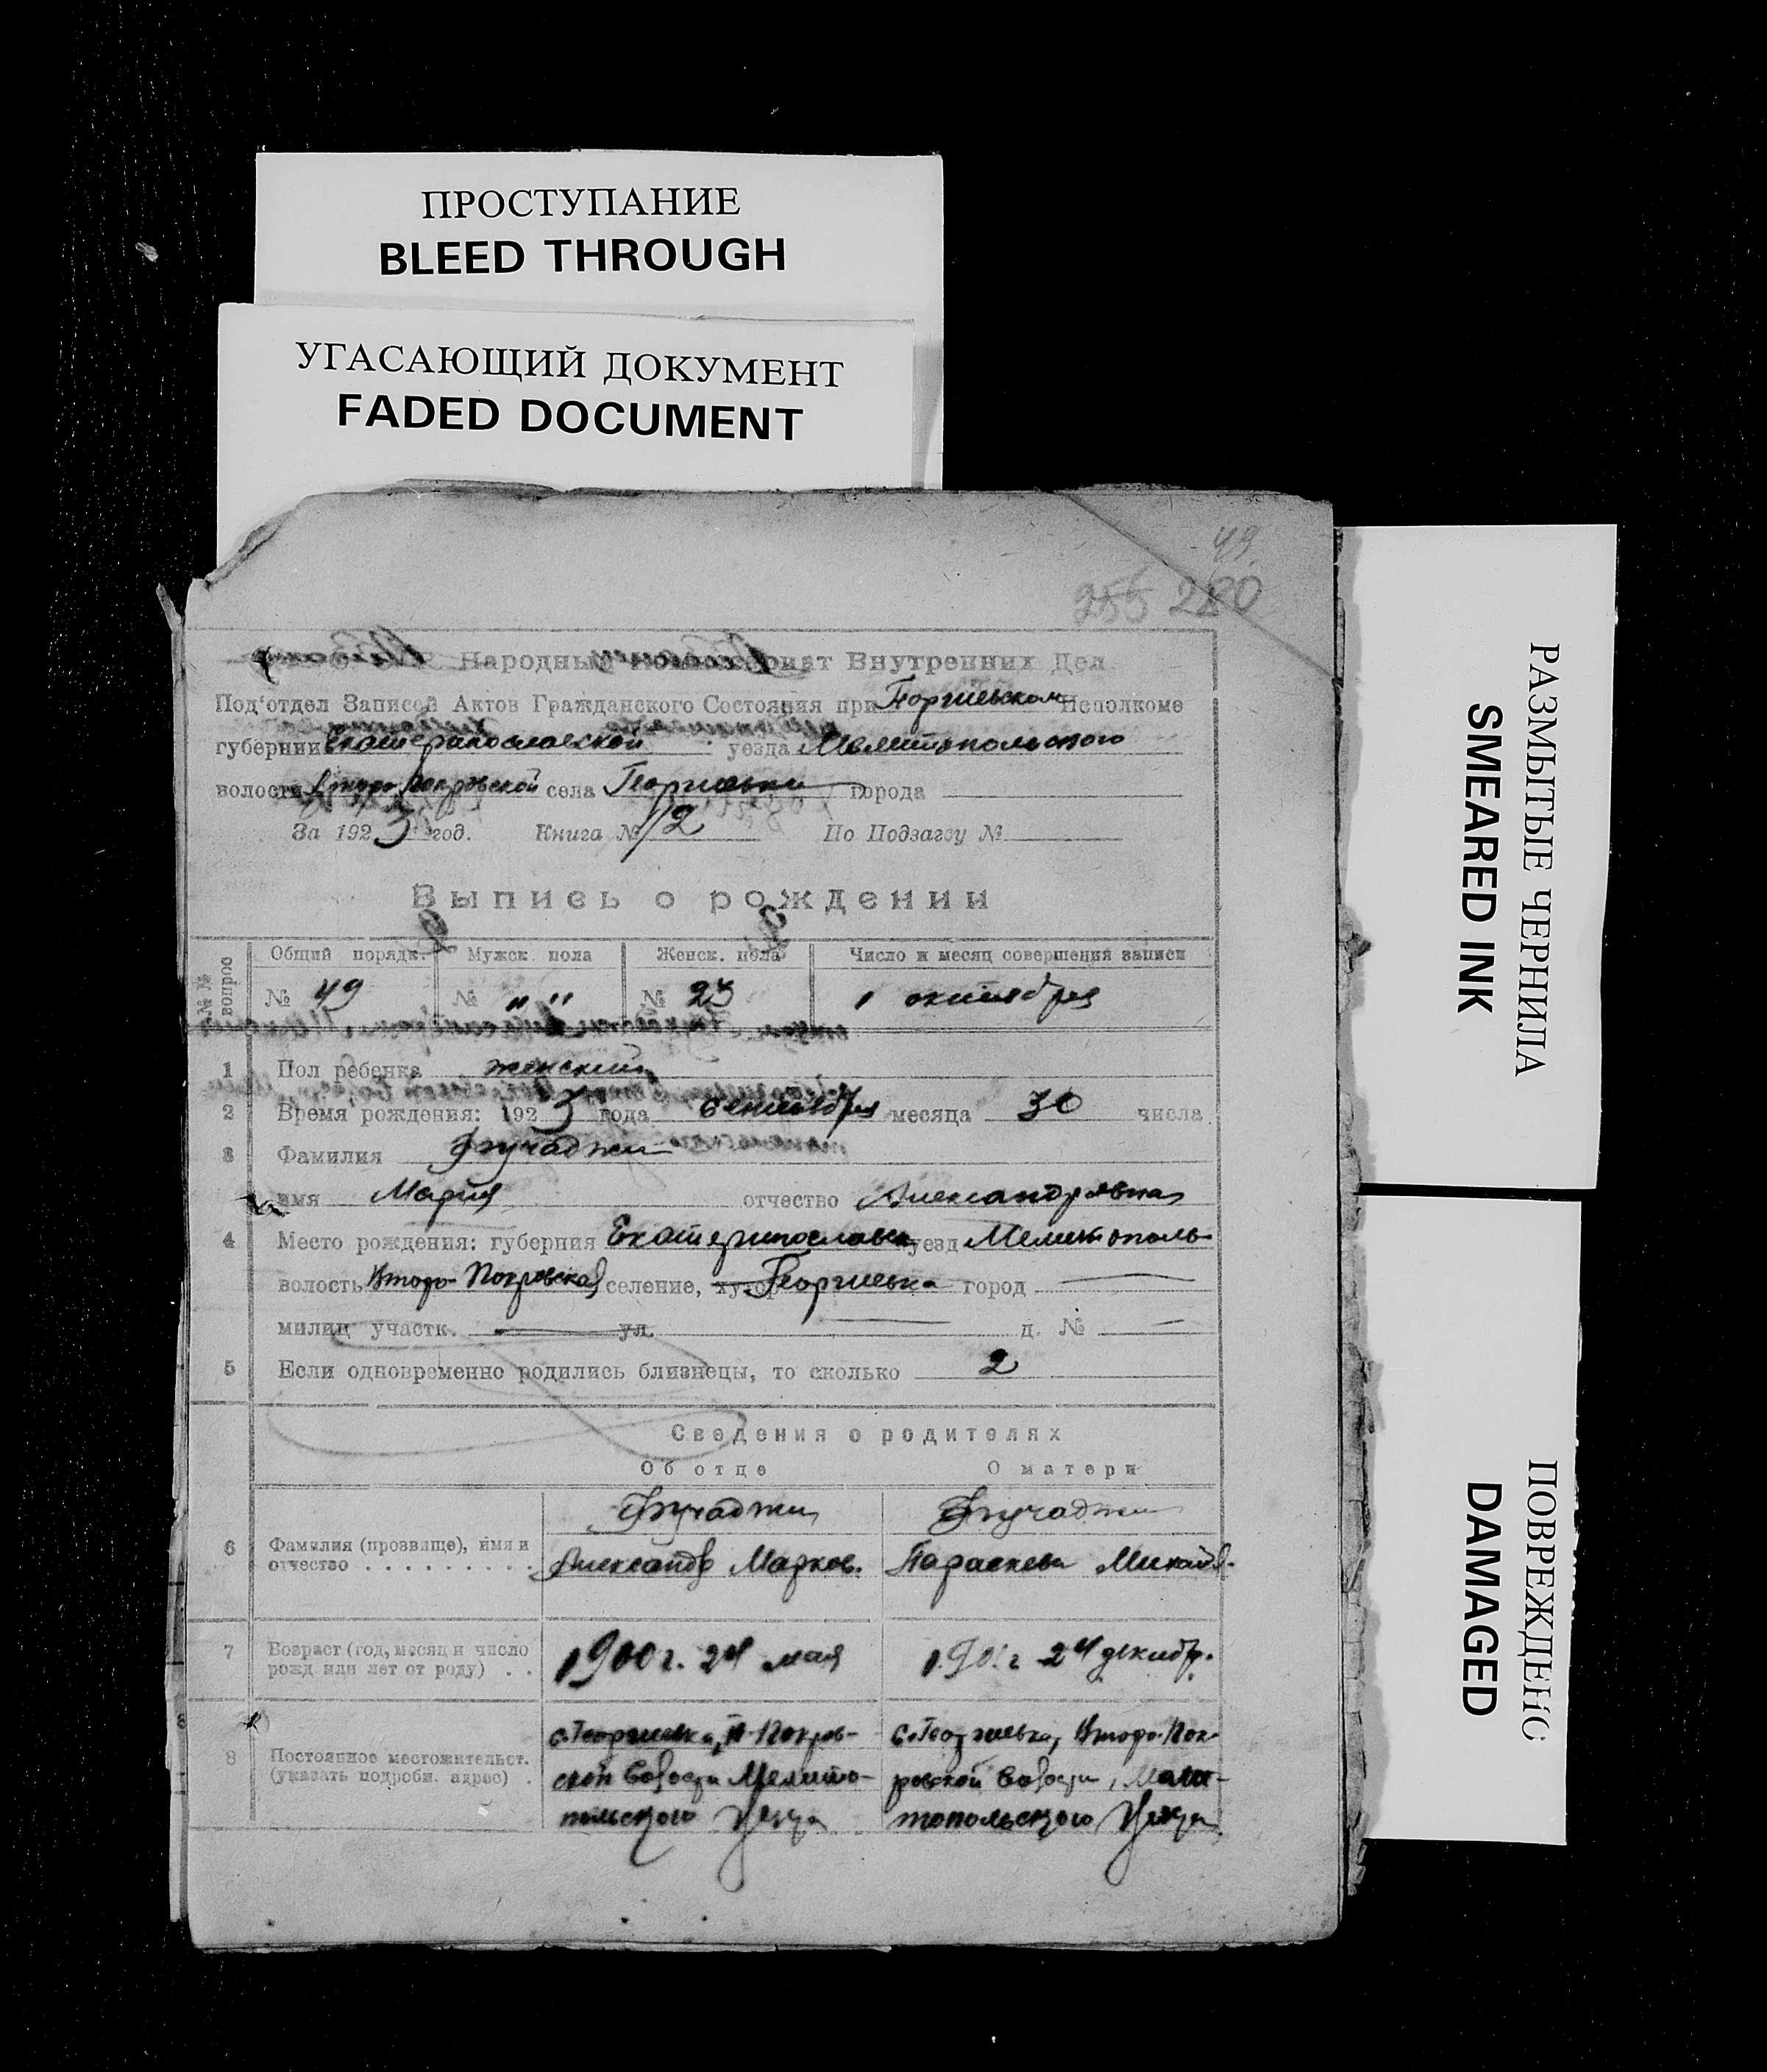 ПРОСТУПАНИЕ
BLEED THROUGH
УГАСАЮЩИЙ ДОКУМЕНТ
FADED DOCUMENT
49
255 280
Народный Внутренних Дел
Под'отдел Записей Актов Гражданского Состояния при Исполкоме
губернии Екатеринославской уезда Мелитопольского
волости Второ-Покровской села города
За 1923 год. Книга № 12 По Подзагсу №
Выпись о рождении
№№ вопрос
Общий порядк. Мужск. пола Женск. пола Число и месяц совершения записи
№ 49 № " " № 23 1 октября
1 Пол ребенка женский
2 Время рождения: 1923 года сентября месяца 30 числа
3 Фамилия
имя Мария отчество Александровна
4 Место рождения: губерния Екатеринославск уезд Мелитополь-
волость Второ-Покровская селение, город
милиц участк. ул. д. №
5 Если одновременно родились близнецы, то сколько 2
Сведения о родителях
Об отце О матери
6 Фамилия (прозвище), имя и отчество
Александр Марков. Параскева Михайл.
7 Возраст (год, месяц и число рожд или лет от роду) 1900 г. 24 мая 1901 г 24 декабр.
8 Постоянное местожительст. (указать подробн. адрес)
с. Георгиевка, II-Покров-
ской Волости Мелито-
польского Уезда
с. Георгиевка, Второ-Пок-
ровской Волости, Мели-
топольского Уезда
РАЗМЫТЫЕ ЧЕРНИЛА
SMEARED INK
ПОВРЕЖДЕНО
DAMAGED